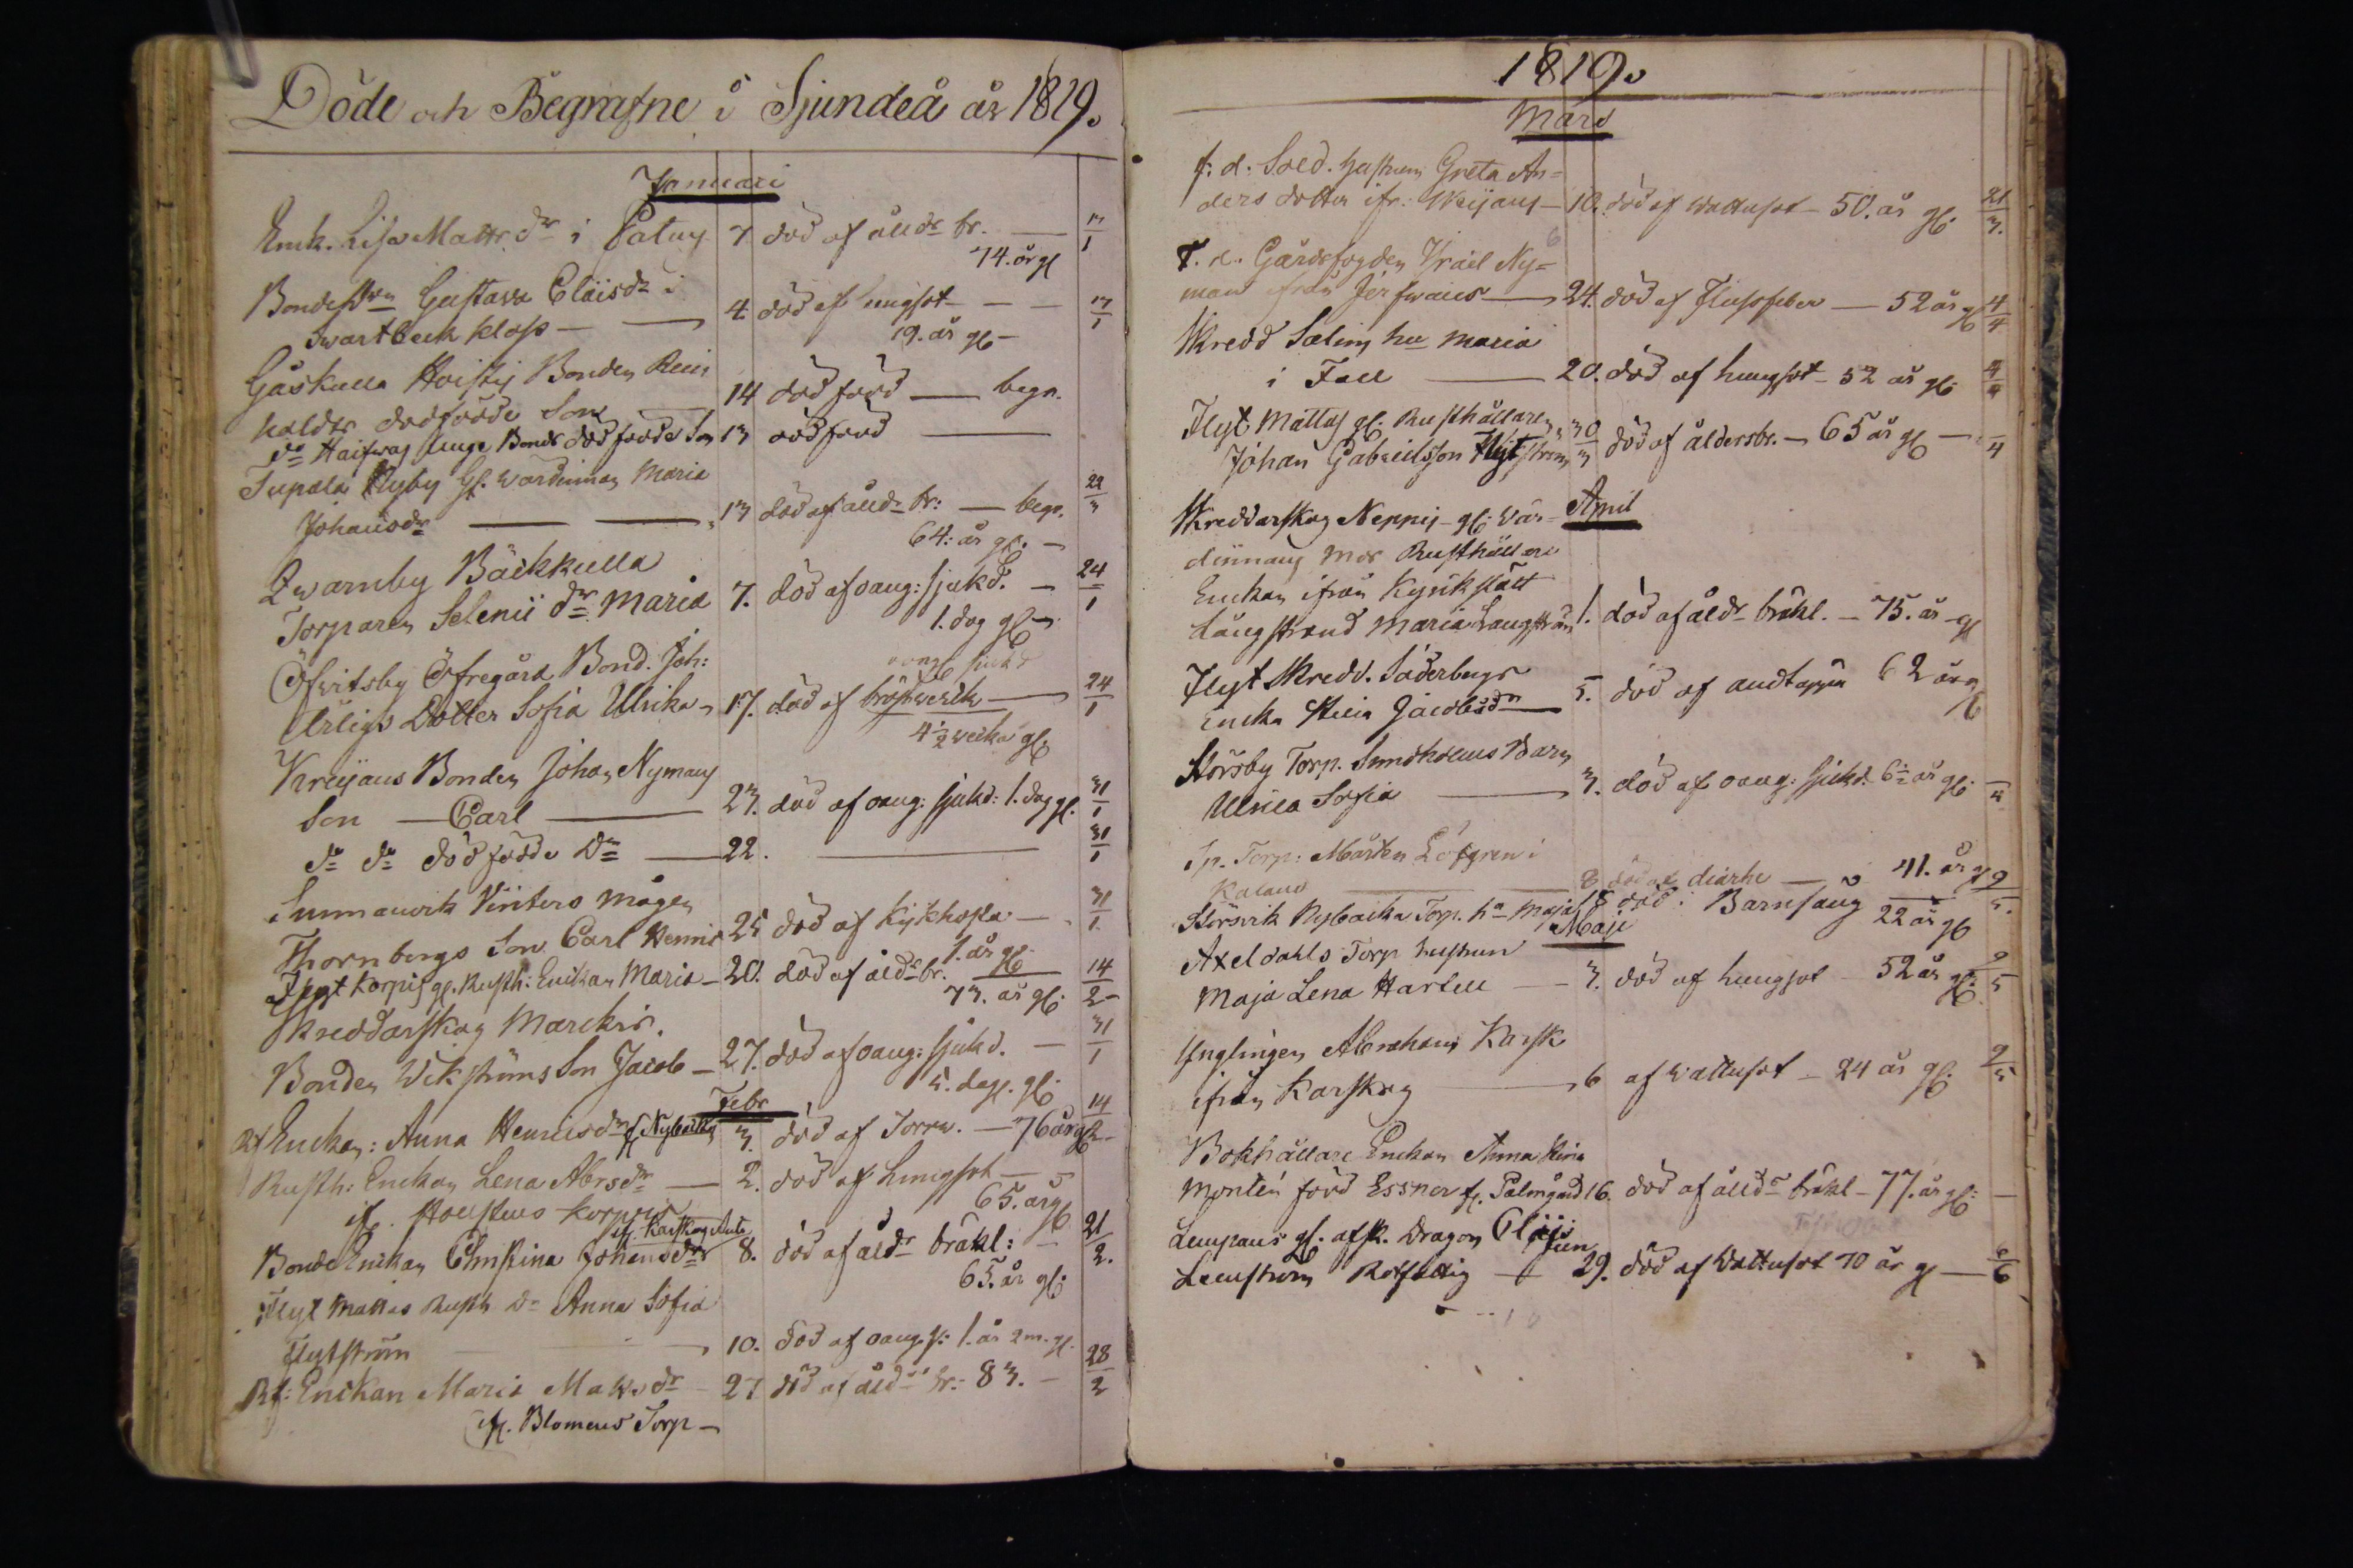 Döde och Begrafne i Sjundeå år 1819.
Januari
Enk. Lisa Matts dr i Palny 7 död af åldr br. — 17/1
74. år gl
Bondehn Gustava Claisdr i
Swartbeck Kloss — 4. död af lungsot — 17/1
19. år gl
Gåskulla Hoisty Bonden Rein
holds dödfödde Son 14 död född — begr.
do Haifwas Unge Bonds död födde Son 13 död född —
Tupala Nyby gl. wärdinnan Maria
Johansdr — 13 död af åldr br: — begr. 22/3
64. år gl. —
Qwarnby Bäckkulla
Torparen Selenii dr Maria 7. död af oang: sjukd. — 24/1
1. dag gl
oang sjukd
Öfwitsby Öfregård Bond. Joh:
Ärligs Dotter Sofia Ulrika 17. död af bröstwerk — 24/1
4 1/2 wecka gl.
Kreijans Bonden Johan Nymans
Son — Carl — 23. död af oang: sjukd: 1. dag gl. 31/1
do do död födde Dr — 22. — 31/1
Sunnanwik Winters mågen
Thornbergs Son Carl Henric 25 död af Kikhosta — 31/1
1. år gl.
Flyt Korpis gl. Rusth: Enckan Maria — 20. död af åldr br. 14/2
73. år gl.
Skreddarskog Marckis.
Bonden Wikströms Son Jacob — 27. död af oang: sjukd. — 31/1
5. dag. gl.
Febr
Rf Enckan: Anna Henricsdr f. Nybacka 3. död af Torrw. — 76 år gl 14/2
Rusth: Enckan Lena Abrsdr — 2. död af Lungsot —
65. år gl
if. Korpis
if. Karskog Ante
Bonde Enckan Christina Johansdr 8. död af åldr bråkl: — 21/2.
65. år gl.
Flyt Mattas Rusth Dr Anna Sofia
Flytström — 10. död af oang. s: 1. år 2 m. gl.
Rf: Enckan Maria Matsdr — 27 död af åldr br: 83. — 28/2
if. Blomens Torp —
1819.
Mars
f: d: Sold. hustrun Greta An=
ders dotter ifr: Skijans — 10. död af wattusot — 50. år gl. 21/3.
F. d. Gårdsfogden Israel Ny=
man ifrån Jerfwans — 24. död af Flussfeber — 52 år gl 4/4
Skredd Salins hu Maria
i Fall — 20. död af lungsot — 52 år gl. 4/4
Flyt Mattas gl. Rusthållaren 30
Johan Gabrielsson Flytström 3 död af åldersbr. — 65 år gl — 4
April
Skreddarskog Neppis — gl: Wär=
dinnan Mor Rusthållare
Enckan ifrån Kyrkslätt
Långstrand Maria Langström 1. död af åldr bråkl. — 75. år gl
Flyt Skredd. Söderbergs
Encka Stina Jacobsdr — 5. död af andtäppa 62 år gl
Störsby Torp. Sundholms Barn
Ulrica Sofia — 3. död af oang: sjukd. 6 1/2 år gl. —/4
Sp. Torp: Mårten Löfgren i
Kaland — 8 död af diarhe — 41. år gl 9/5.
Störsvik Nybacka Torp. hu Maja 18 död i Barnsäng 22 år gl
Maji
Axel dahls Torp hustrun
Maja Lena Hartell — 3. död af lungsot 52 år gl. 9/5
Ynglingen Abraham Karsk
ifrån Karskog — 6 af wattusot — 24 år gl. 9/5
Bokhållare Enckan Anna Stina
Montin född Essner f. Palmgård 16. död af åldr bråkl — 77. år gl. —
Lempans gl. afsk. Dragon Claës
Leenström Rotfattig — 29. död af wattusot 70 år gl — 6/6